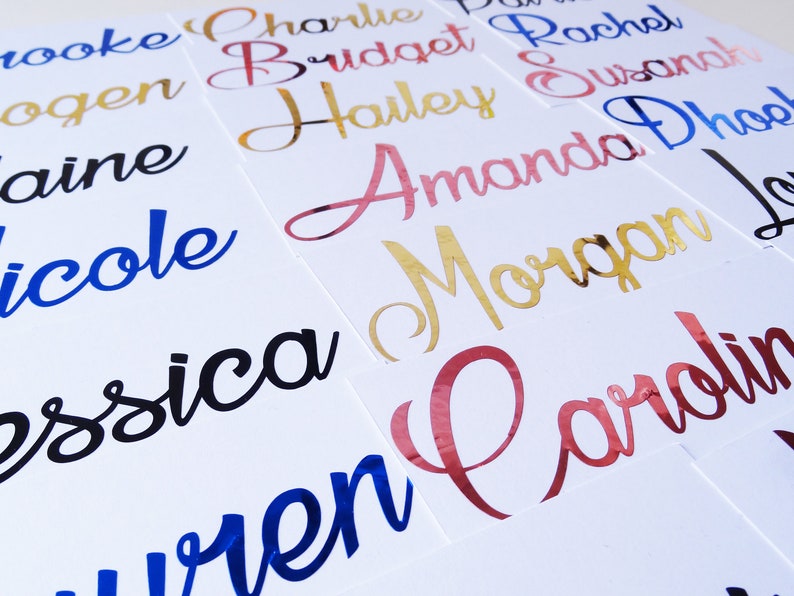 rooke
Charlie
Rachel
ogen
Bridget
Susanah
Hailey
Phoeb
aine
Amanda
icole
Morgan
essica
Carolin
uren